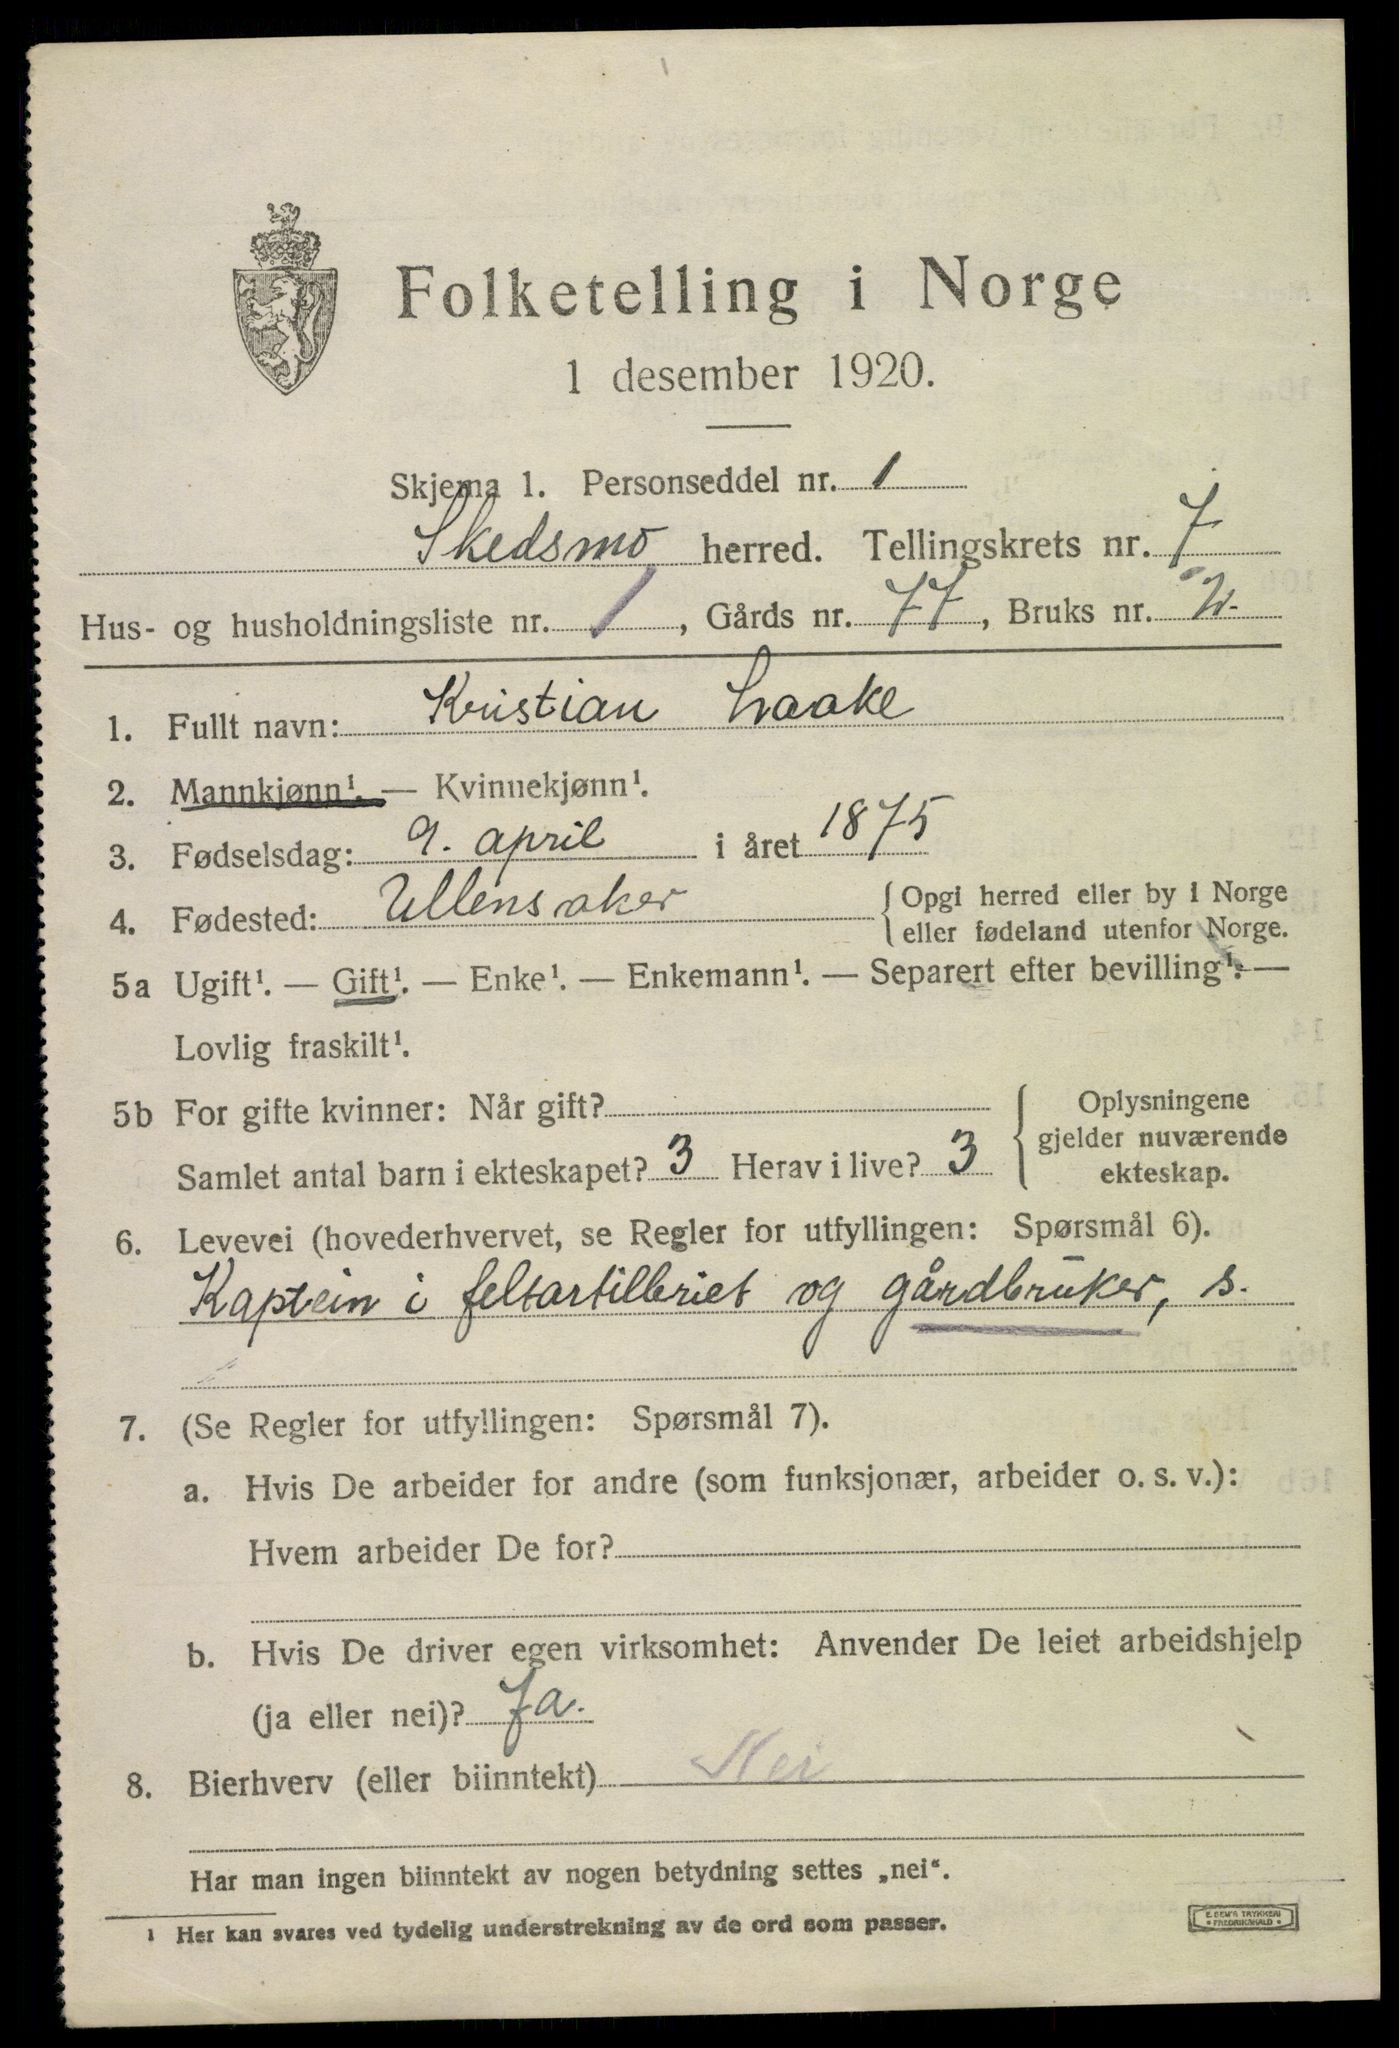 Folketelling i Norge
1 desember 1920.
Skjema 1. Personseddel nr. 1
Skedsmo herred. Tellingskrets nr. 7
Hus- og husholdningsliste nr. 1, Gårds nr. 77, Bruks nr. 2.
1. Fullt navn: Kristian Laake
2. Mannkjønn¹. — Kvinnekjønn¹.
3. Fødselsdag: 9. april i året 1875
4. Fødested: Ullensaker {Opgi herred eller by i Norge
eller fødeland utenfor Norge.
5a Ugift¹. — Gift¹. — Enke¹. — Enkemann¹. — Separert efter bevilling¹. —
Lovlig fraskilt¹.
5b For gifte kvinner: Når gift? { Oplysningene
gjelder nuværende
Samlet antal barn i ekteskapet? 3 Herav i live? 3
ekteskap.
6. Levevei (hovederhvervet, se Regler for utfyllingen: Spørsmål 6).
Kaptein i feltartilleriet og gårdbruker, s.
7. (Se Regler for utfyllingen: Spørsmål 7).
a. Hvis De arbeider for andre (som funksjonær, arbeider o. s. v.):
Hvem arbeider De for?
b. Hvis De driver egen virksomhet: Anvender De leiet arbeidshjelp
(ja eller nei)? Ja.
8. Bierhverv (eller biinntekt) Nei
Har man ingen biinntekt av nogen betydning settes „nei“.
¹ Her kan svares ved tydelig understrekning av de ord som passer.
E. SEM'S TRYKKERI
• FREDRIKSHALD •